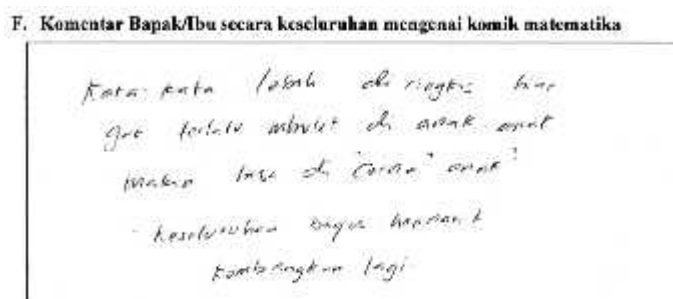 F. Komentar Bapak/Ibu secara keseluruhan mengenai komik matematika
Kata-kata lebih di ringkas biar
gak terlalu di anak anak
makin bisa di "cerna" anak"
- keseluruhan bagus
kembangkan lagi